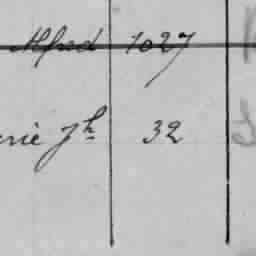 Alfred 1027
rie Jh 32